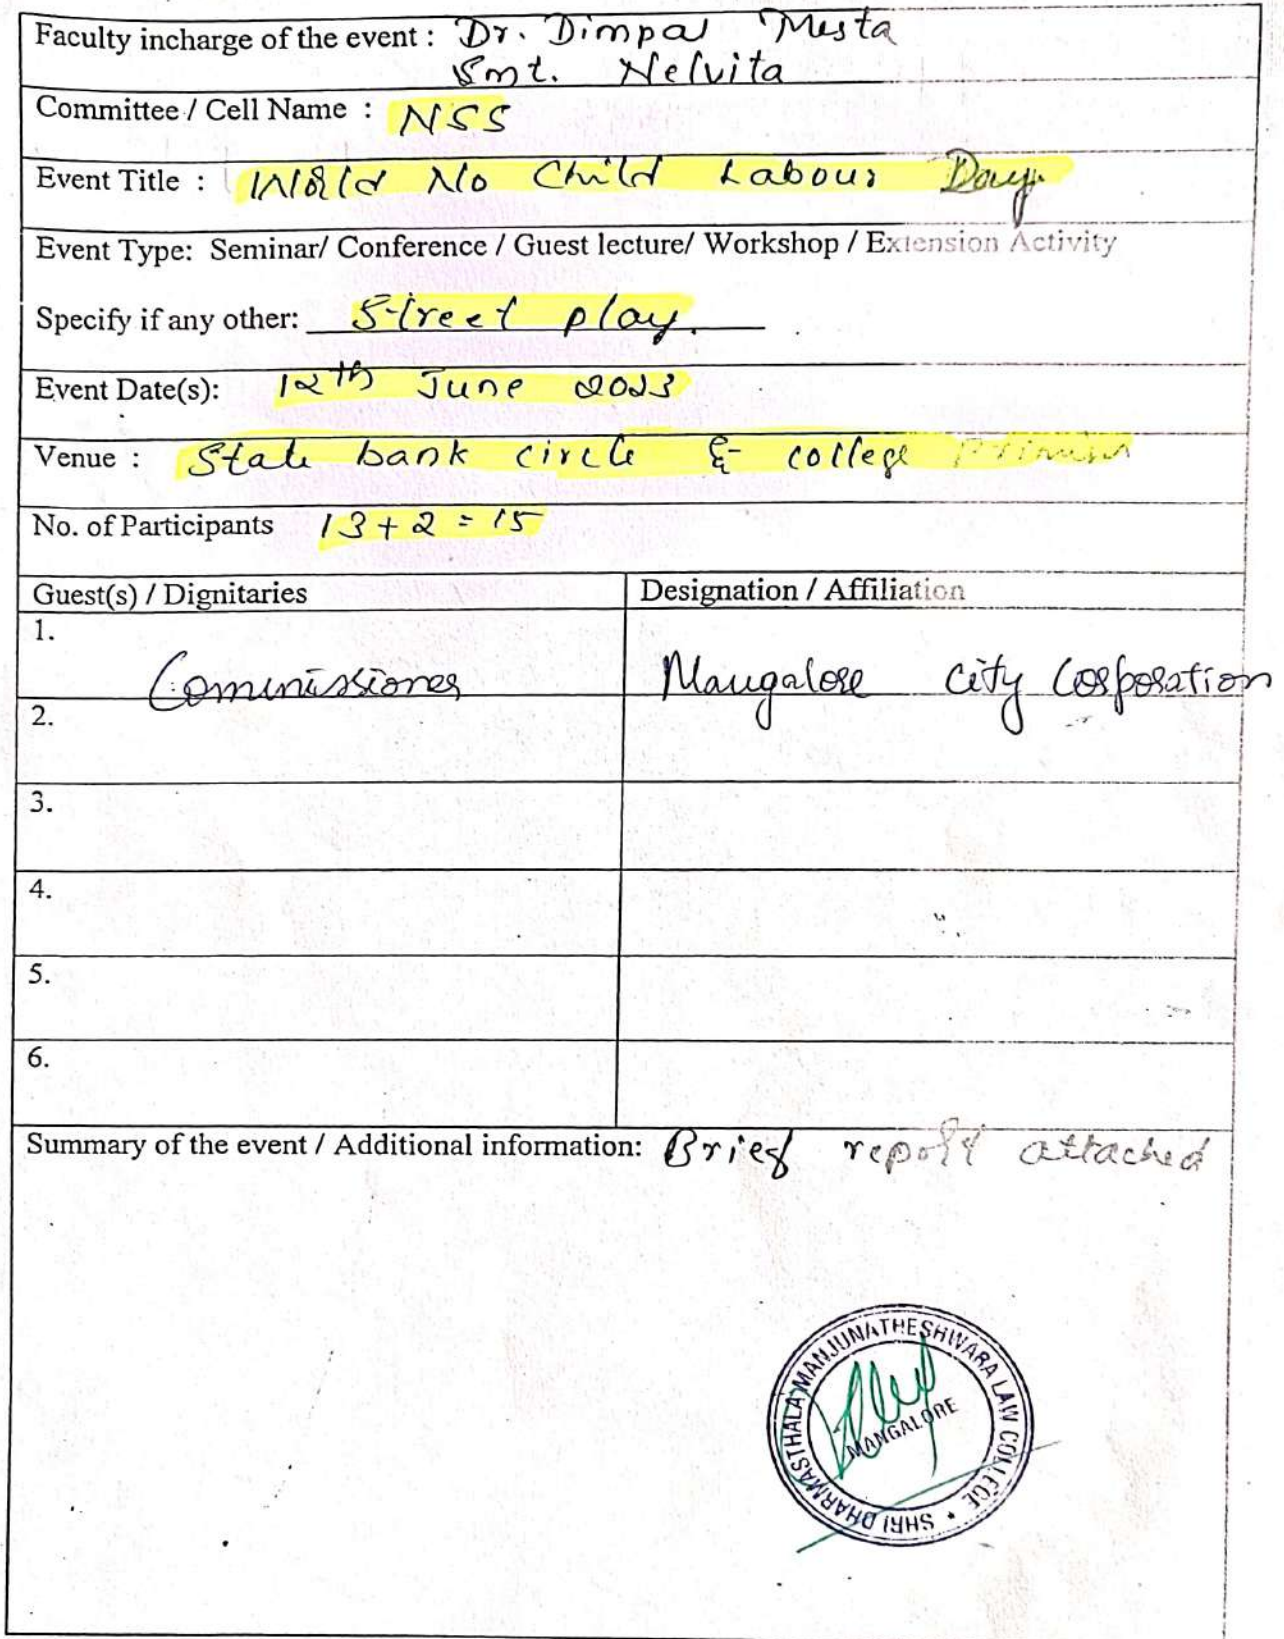 Faculty incharge of the event : Dr. Dimpal Mesta
Smt. Nelvita
Committee / Cell Name : NSS
Event Title : World No Child Labour Day.
Event Type: Seminar/ Conference / Guest lecture/ Workshop / Extension Activity
Specify if any other: Street play.
Event Date(s): 12th June 2023
Venue : State bank circle & college
No. of Participants 13+2=15
Guest(s) / Dignitaries Designation / Affiliation
1.
Commissioner Mangalore City Corporation
2.
3.
4.
5.
6.
Summary of the event / Additional information: Brief report attached
SHRI DHARMASTHALA MANJUNATHESHWARA LAW COLLEGE *
MANGALORE